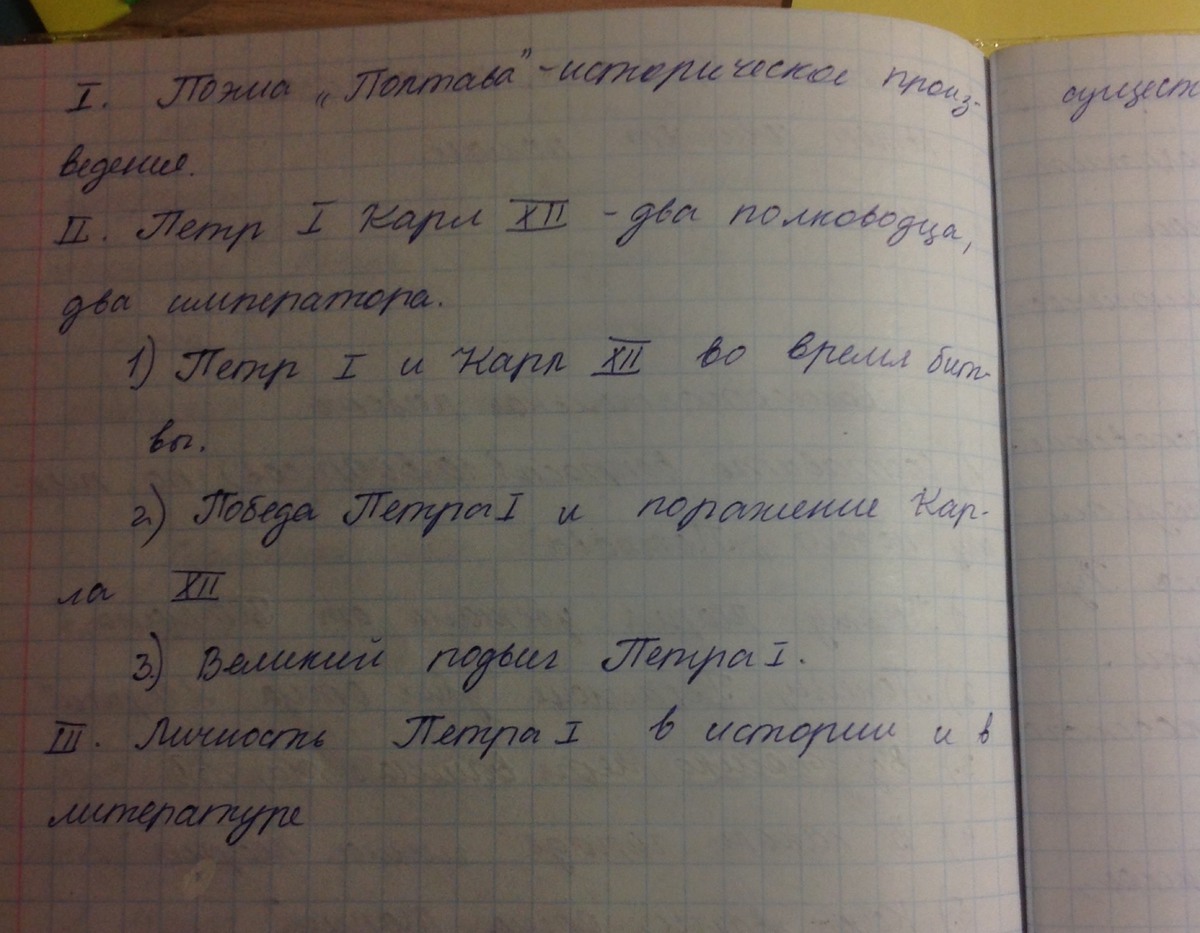 I. Поэма „Полтава" - историческое произ-
ведение.
II. Петр I Карл XII - два полководца,
два императора.
1) Петр I и Карл XII во время бит-
вы.
2) Победа Петра I и поражение Кар-
ла XII
3.) Великий подвиг Петра I.
III. Личность Петра I в истории и в
литературе
сущест